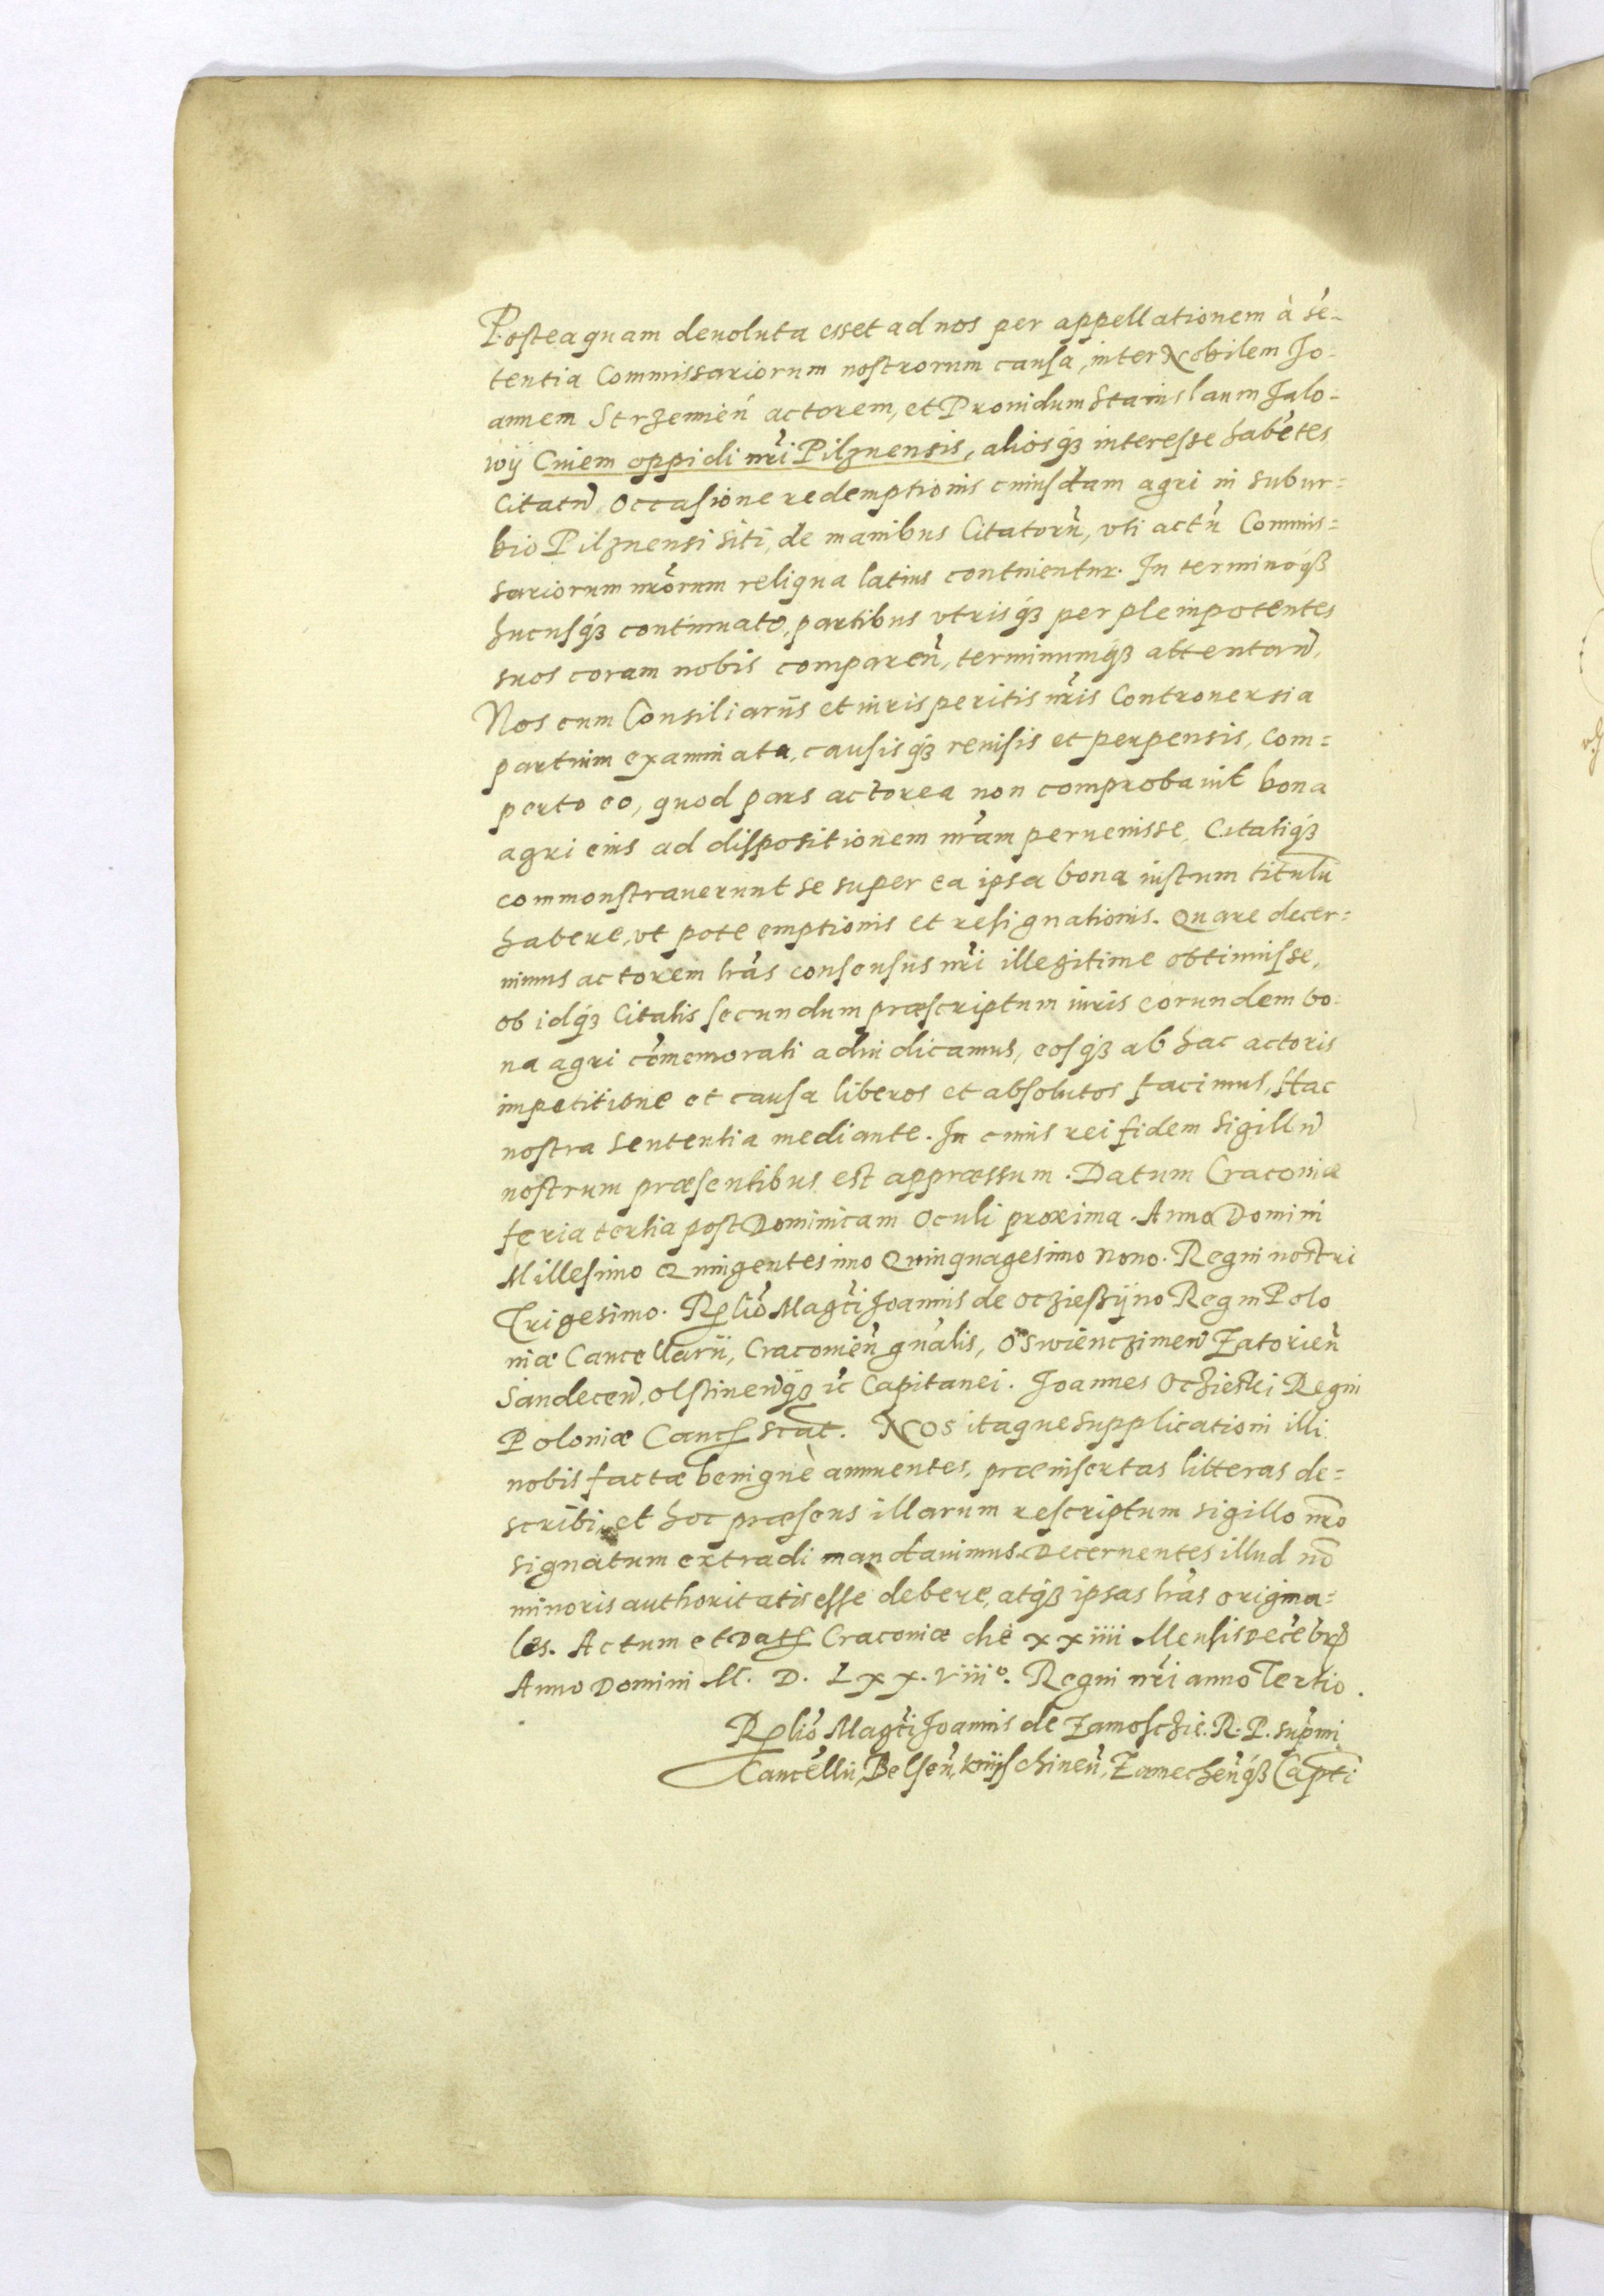 Posteaquam deuoluta esset ad nos per appellationem à sē-
tentia Commissariorum nostrorum causa, inter Nobilem Jo-
annem Strzemień actorem, et Prouidum Stanislaum Jalo-
wij Ciuem oppidi nr̃i Pilznensis, aliosq́ȝ interesse habẽtes
Citatũ Occasione redemptionis cuiusdam agri in subur=
bio Pilznensi siti, de manibus Citatorũ, vti actũ Commis=
sariorum nr̃orum reliqua latius continentur. In terminoq́ȝ
hucusq́ȝ continuato, partibus vtrisq́ȝ per plenipotentes
suos coram nobis compareñ, terminumq́ȝ attentañ,
Nos cum Consiliarijs et iurisperitis nr̃is Controuersia
partium examinata, causisq́ȝ reuisis et perpensis, Com=
perto eo, quod pars actorea non comprobauit bona
agri eius ad dispositionem nr̃am peruenisse, Citatiq́ȝ
commonstrauerunt se super ea ipsa bona iustum titulũ
habere, vt pote emptionis et resignationis. Quare decer=
nimus actorem lr̃as consensus nr̃i illegitime obtinuisse,
ob idq́ȝ Citatis secundum præscriptum iuris eorundem bo-
na agri cõmemorati adiudicamus, eosq́ȝ ab hac actoris
impetitione et causa liberos et absolutos facimus, Hac
nostra sententia mediante. In cuius rei fidem Sigillũ
nostrum præsentibus est appræssum. Datum Cracouiæ
feria tertia post Dominicam Oculi proxima. Anno Domini
Millesimo Quingentesimo Quinquagesimo Nono. Regni nostri
Trigesimo. Rel̃io Magc̃i Joannis de Ocziessijno Regni Polo
niæ Cancellarij, Cracouieñ gñalis, Oswiencziméñ Zatorieñ
Sandeceñ, Olstineñq́ȝ ic̃ Capitanei. Joannes Oczieski Regni
Poloniæ Canc̃ ss̃at. Nos itaque supplicationi illi
nobis factæ benignè annuentes, præinsertas litteras de=
scribi, et hoc præsens illarum rescriptum sigillo nr̃o
signatum extradi mandauimus. Decernentes illud nõ
minoris authoritatis esse debere, atq́ȝ ipsas lr̃as origina=
les. Actum et Dat̃ Cracouiæ die xxiiii Mensis Decẽbr̃
Anno Domini M. D. Lxx. viiiº. Regni nr̃i anno Tertio.
Rel̃io Magc̃i Joannis de Zamoschie. R. P. sup̃mi
Cancell̃ij, Belseñ, Knijschineñ, Zamecheñq́ȝ Cap̃ti